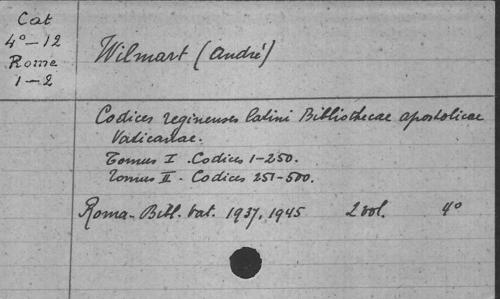 Cat
4°-12
Rome
1-2
Wilmart (André)
Codices reginenses latini Bibliothecae apostolicae
Vaticanae.
Tomus I. Codices 1-250.
Tomus II. Codices 251-500.
Roma-Bibl. Vat. 1937, 1945 2 vol. 4°